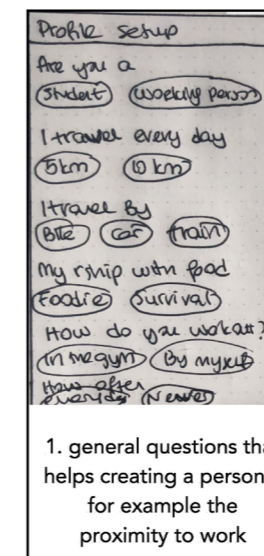 Profile setup
Are you a
Student Working person
I travel every day
5km 10 km
I travel By
Bike Car train
My rship with food
Foodie Survival
How do you workout?
In the gym By myself
How often
everyday Never
1. general questions tha
helps creating a person
for example the
proximity to work